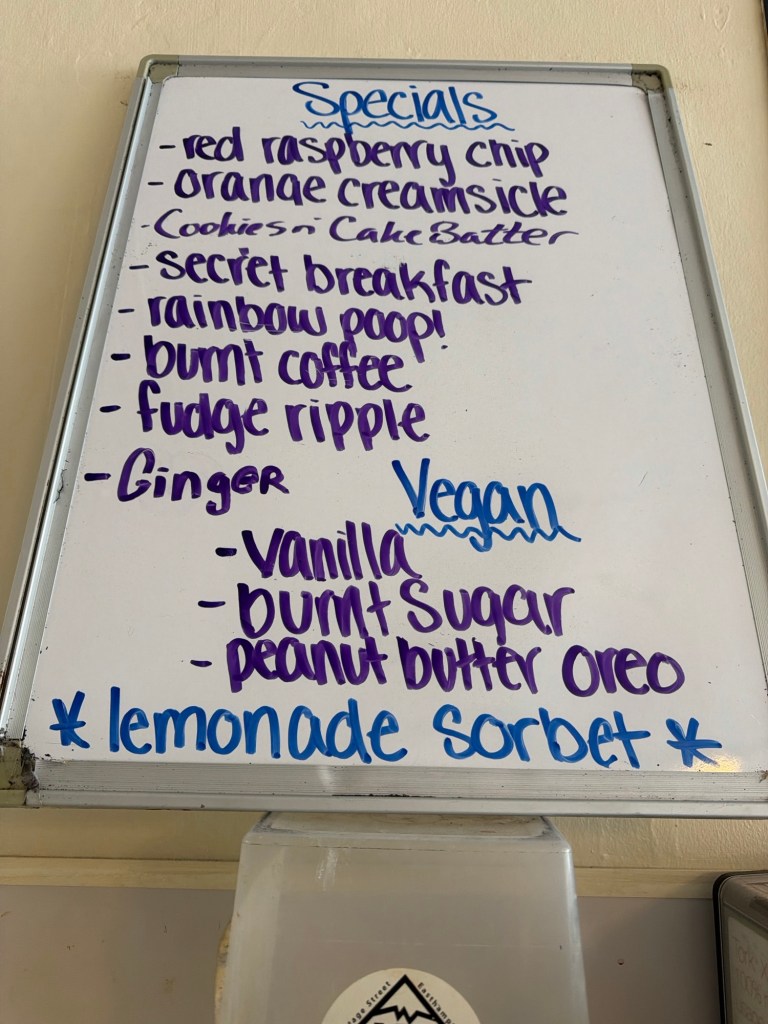 Specials
- red raspberry chip
- orange creamsicle
- Cookies n' Cake Batter
- secret breakfast
- rainbow poop!
- burnt coffee
- fudge ripple
- Ginger
Vegan
- vanilla
- burnt sugar
- peanut butter oreo
* lemonade sorbet *
age Street
Easthamp